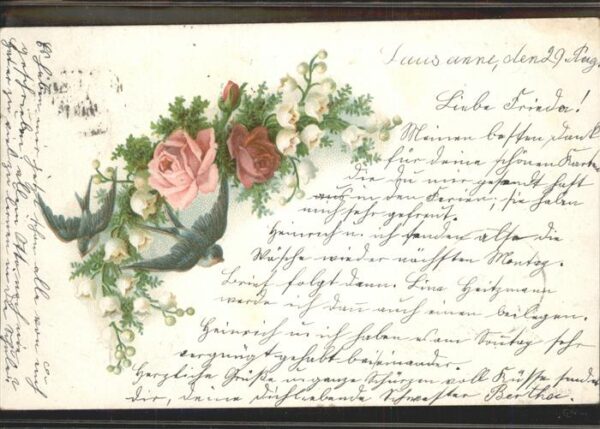 Lausanne, den 29 Aug.
Liebe Frieda!
Meinen besten Dank
für deine schönen Karten
die du mir gesandt hast
aus den Ferien; sie haben
mich sehr gefreut.
Heinrich u. ich senden also die
Wäsche wieder nächsten Montag.
Brief folgt dann. Lina Heitzmann
werde ich dann auch einen beilegen.
Heinrich u. ich haben es am Sonntag sehr
vergnügt gehabt beieinander.
Herzliche Grüße u. ganze Schürzen voll Küsse sendet
dir, deine dichliebende Schwester Bertha.